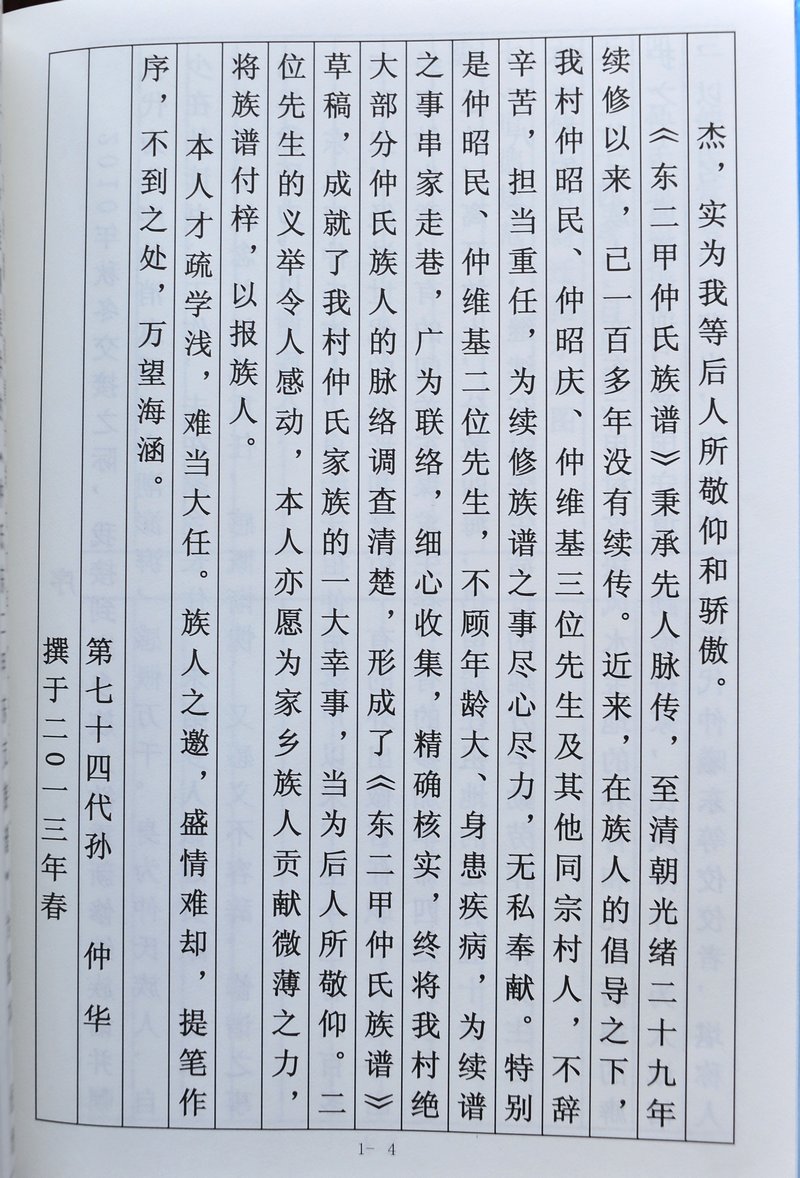 杰，实为我等后人所敬仰和骄傲。
《东二甲仲氏族谱》秉承先人脉传，至清朝光绪二十九年
续修以来，已一百多年没有续传。近来，在族人的倡导之下，
我村仲昭民、仲昭庆、仲维基三位先生及其他同宗村人，不辞
辛苦，担当重任，为续修族谱之事尽心尽力，无私奉献。特别
是仲昭民、仲维基二位先生，不顾年龄大、身患疾病，为续谱
之事串家走巷，广为联络，细心收集，精确核实，终将我村绝
大部分仲氏族人的脉络调查清楚，形成了《东二甲仲氏族谱》
草稿，成就了我村仲氏家族的一大幸事，当为后人所敬仰。二
位先生的义举令人感动，本人亦愿为家乡族人贡献微薄之力，
将族谱付梓，以报族人。
本人才疏学浅，难当大任。族人之邀，盛情难却，提笔作
序，不到之处，万望海涵。
第七十四代孙 仲 华
撰于二〇一三年春
1- 4